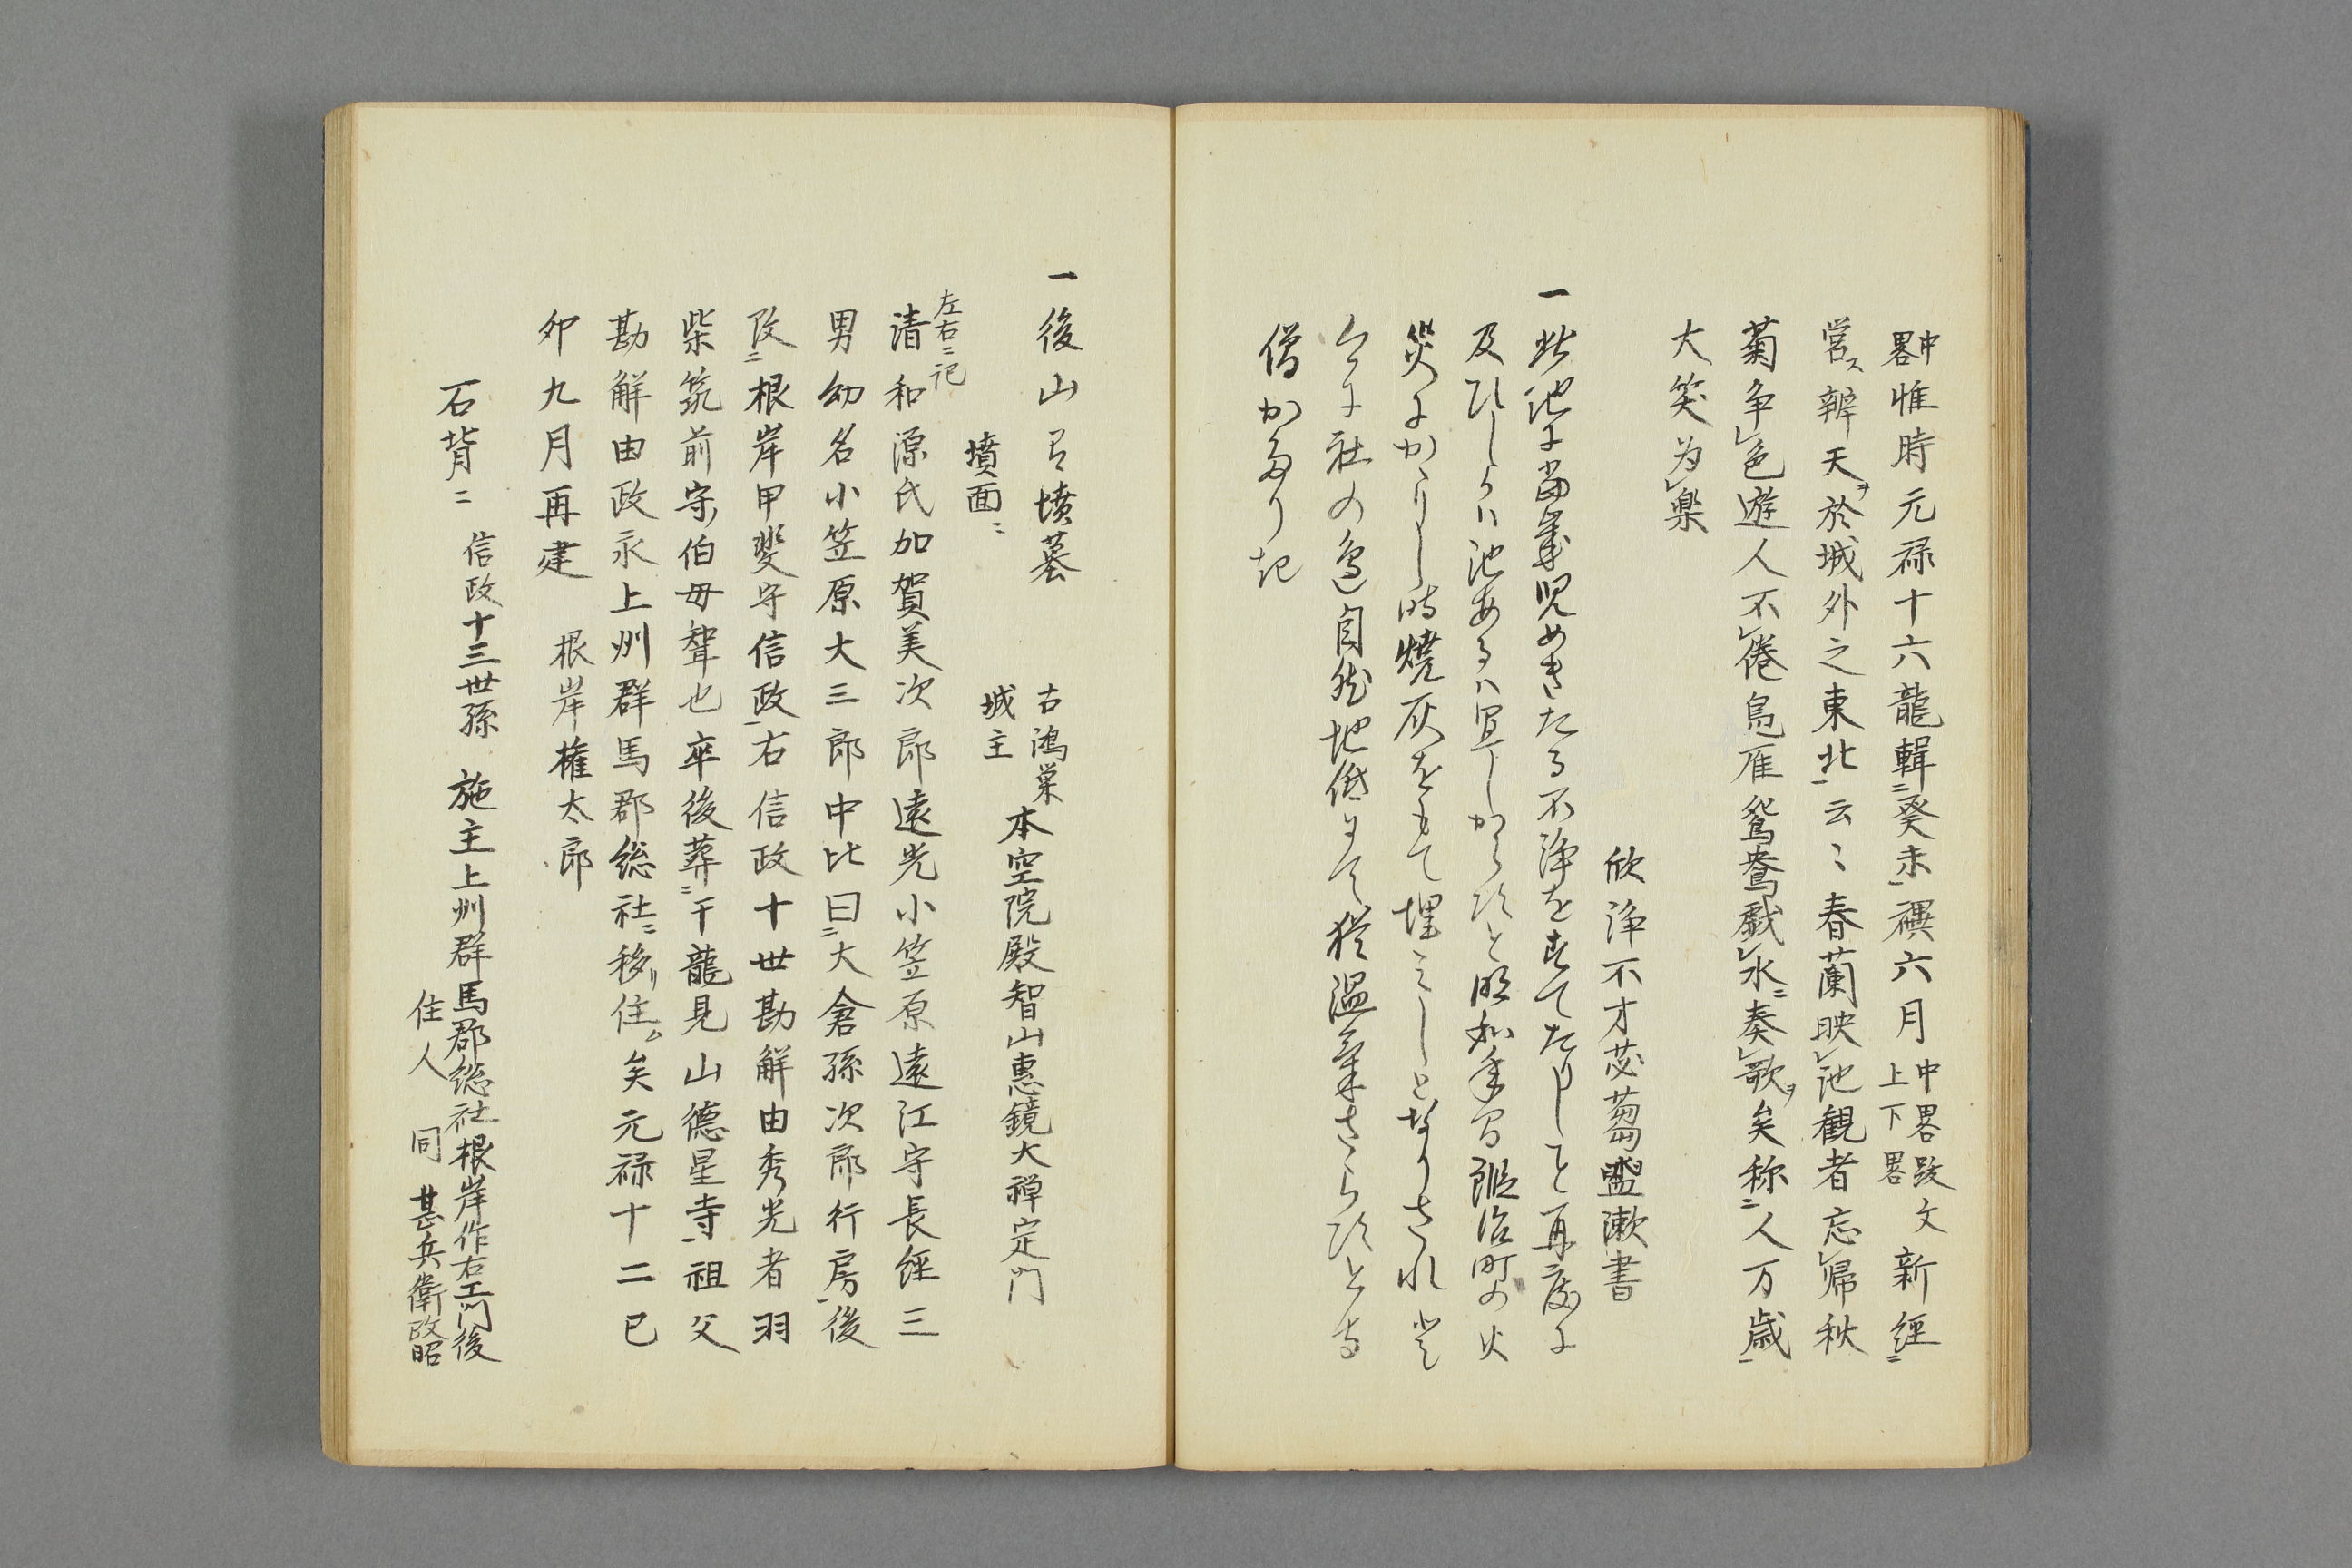 中畧惟時元禄十六龍輯ニ癸未一禩六月中畧跋文上下畧新經ニ
営ス辨天ヲ於城外之東北一云〻春蘭映レ池観者忘レ帰秋
菊争レ色遊人不レ倦鳥雁鴛鴦戯レ水ニ奏レ歌ヲ矣称ニ人万歳一
大笑為レ楽
欣浄不才苾蒭盥漱書
一此池に当歳児めきたる不浄をすてたりしこと再度に
及ひしより池あるハ宜しからすと明和年間鍛冶町の火
災にかゝりし時焼灰をもて埋みしとなりされと
今に社の邉自然地低にて猶温氣さらすと寺
僧かたりき
一後山古墳墓
古鴻巣城主本空院殿智山惠鏡大禅定門
墳面ニ
左右ニ記
清和源氏加賀美次郎遠光小笠原遠江守長經三
男幼名小笠原大三郎中比曰ニ大倉孫次郎行房一後
改ニ根岸甲斐守信政一右信政十世勘解由秀光者羽
柴筑前守ノ伯母聟也卒後葬ニ干龍見山德星寺一祖父
勘解由政永上州群馬郡総社ニ移リ住ム矣元禄十二巳
卯九月再建　根岸権太郎
石背ニ　信政十三世孫　施主上州群馬郡総社根岸作右エ門後
住人　同　甚兵衛政昭